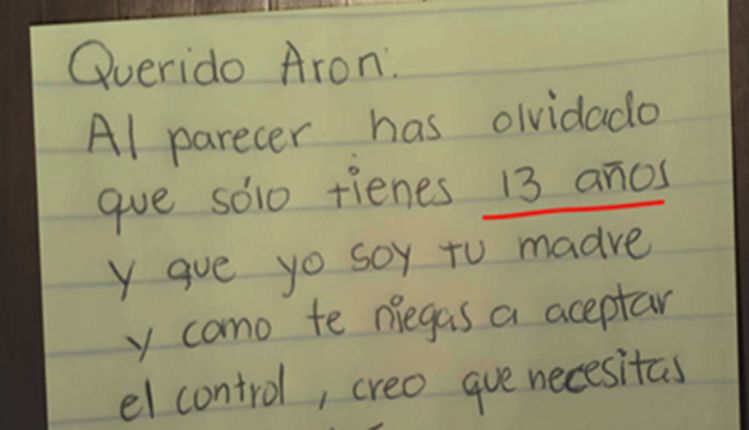 Querido Aron:
Al parecer has olvidado
que sólo tienes 13 años
y que yo soy tu madre
y como te niegas a aceptar
el control, creo que necesitas